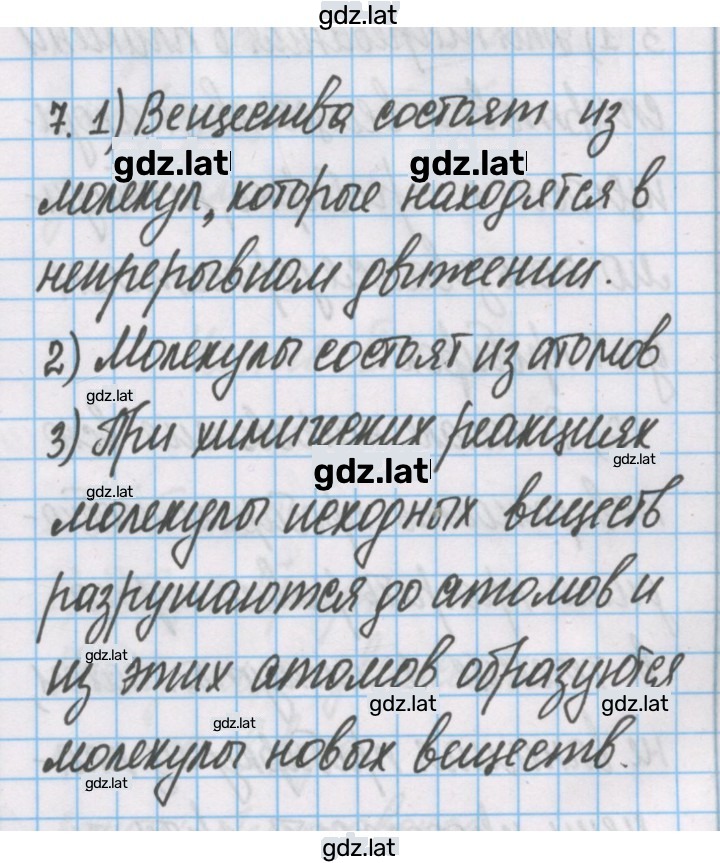 gdz.lat
7. 1) Вещества состоят из
gdz.lat gdz.lat
молекул, которые находятся в
непрерывном движении.
2) Молекулы состоят из атомов
gdz.lat
3) При химических реакциях
gdz.lat gdz.lat
gdz.lat
молекулы исходных веществ
разрушаются до атомов и
gdz.lat
из этих атомов образуются
gdz.lat gdz.lat
gdz.lat
молекулы новых веществ.
gdz.lat
gdz.lat